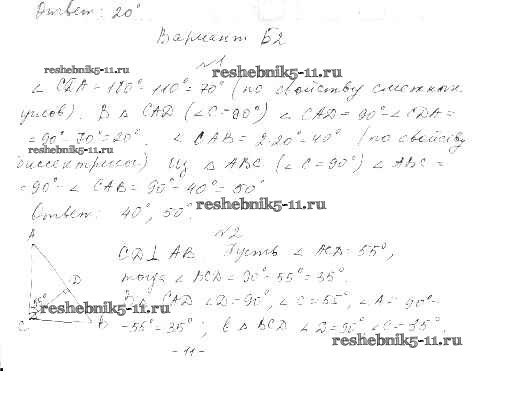 Ответ: 20°
Вариант Б2
№1
reshebnik5-11.ru
reshebnik5-11.ru
∠ CDA = 180° - 110° = 70° (по свойству смежных
углов). В △ CAD (∠C = 90°) ∠ CAD = 90° - ∠CDA =
= 90° - 70° = 20°. ∠ CAB = 2·20° = 40° (по свойству
reshebnik5-11.ru
биссектрисы) Из △ ABC (∠C = 90°) ∠ ABC =
= 90° - ∠ CAB = 90° - 40° = 50°
Ответ: 40°, 50°.
reshebnik5-11.ru
№2
A
CD ⊥ AB. Пусть ∠ ACD = 55°,
D
тогда ∠ BCD = 90° - 55° = 35°.
В △ CAD ∠D = 90°, ∠C = 55°, ∠A = 90° -
reshebnik5-11.ru
C
B
- 55° = 35°; В △ BCD ∠D = 90°, ∠C = 35°.
reshebnik5-11.ru
- 11 -